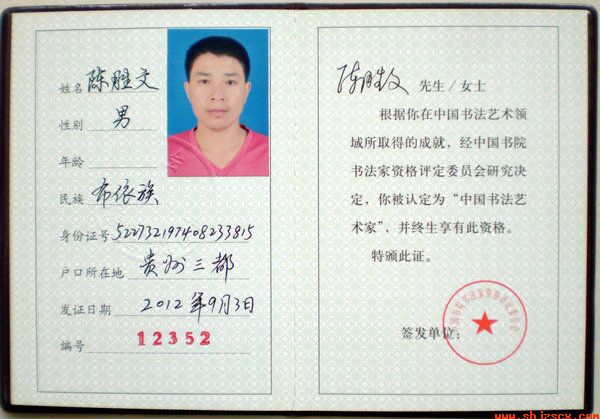 姓名 陈胜文
性别 男
年龄
民族 布依族
身份证号 522732197408233815
户口所在地 贵州三都
发证日期 2012年9月3日
编号 12352
陈胜文 先生/女士
根据你在中国书法艺术领
域所取得的成就，经中国书院
书法家资格评定委员会研究决
定，你被认定为“中国书法艺
术家”，并终生享有此资格。
特颁此证。
签发单位：
中国书院书法家资格评定委员会
www.shjzscx.com